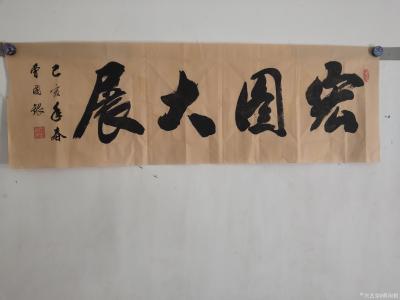 宏图大展
己亥年春
曹国银